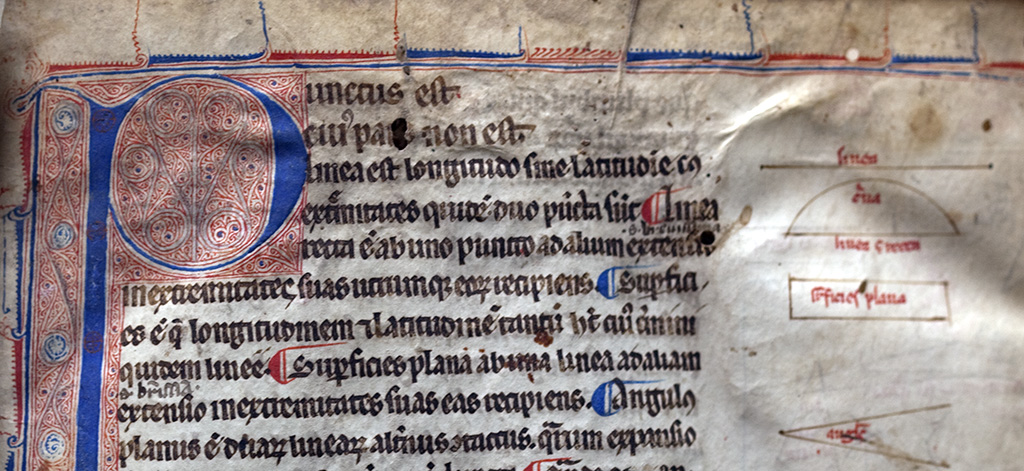 Punctus est
cuiꝰ pars non est.
Linea est longitudo sine latitudīe cꝰ
ext̄mitates quidē duo pūcta sūt ¶ Linea
recta ē ab uno puncto ad alium extensio
in extremitates suas utrumque eoꝝ recipiens. ¶ Supfici
es ē q̄ longitudinem ⁊ latitudinē tantū ht cuiꝰ ̄
quidem lineē. ¶ Supficies plana ab una linea ad aliam
extensio in extremitates suas eas recipiens. ¶ Angulꝰ
planus ē duaꝝ lineaꝝ alt̄nus ↄtactus. quarum expansio
linea
linea recta
supficies plana
anglꝰ